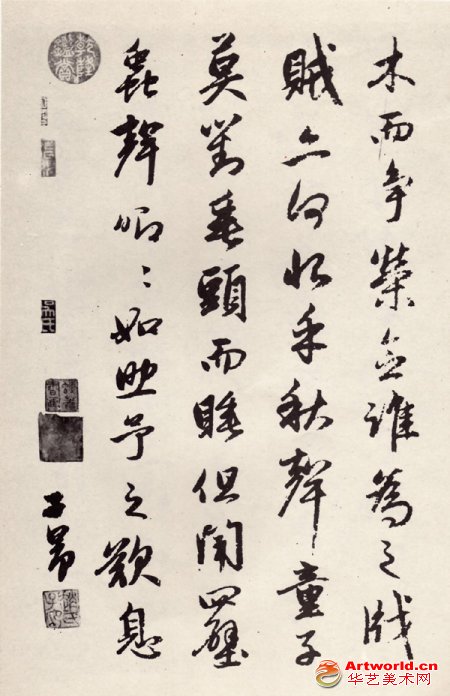 木而爭榮念誰為之戕
賊亦何恨乎秋聲童子
莫對垂頭而睡但聞四壁
蟲聲唧〻如助予之歎息
子昂
趙氏子昂
乾隆鑑賞
Artworld.cn
华艺美术网